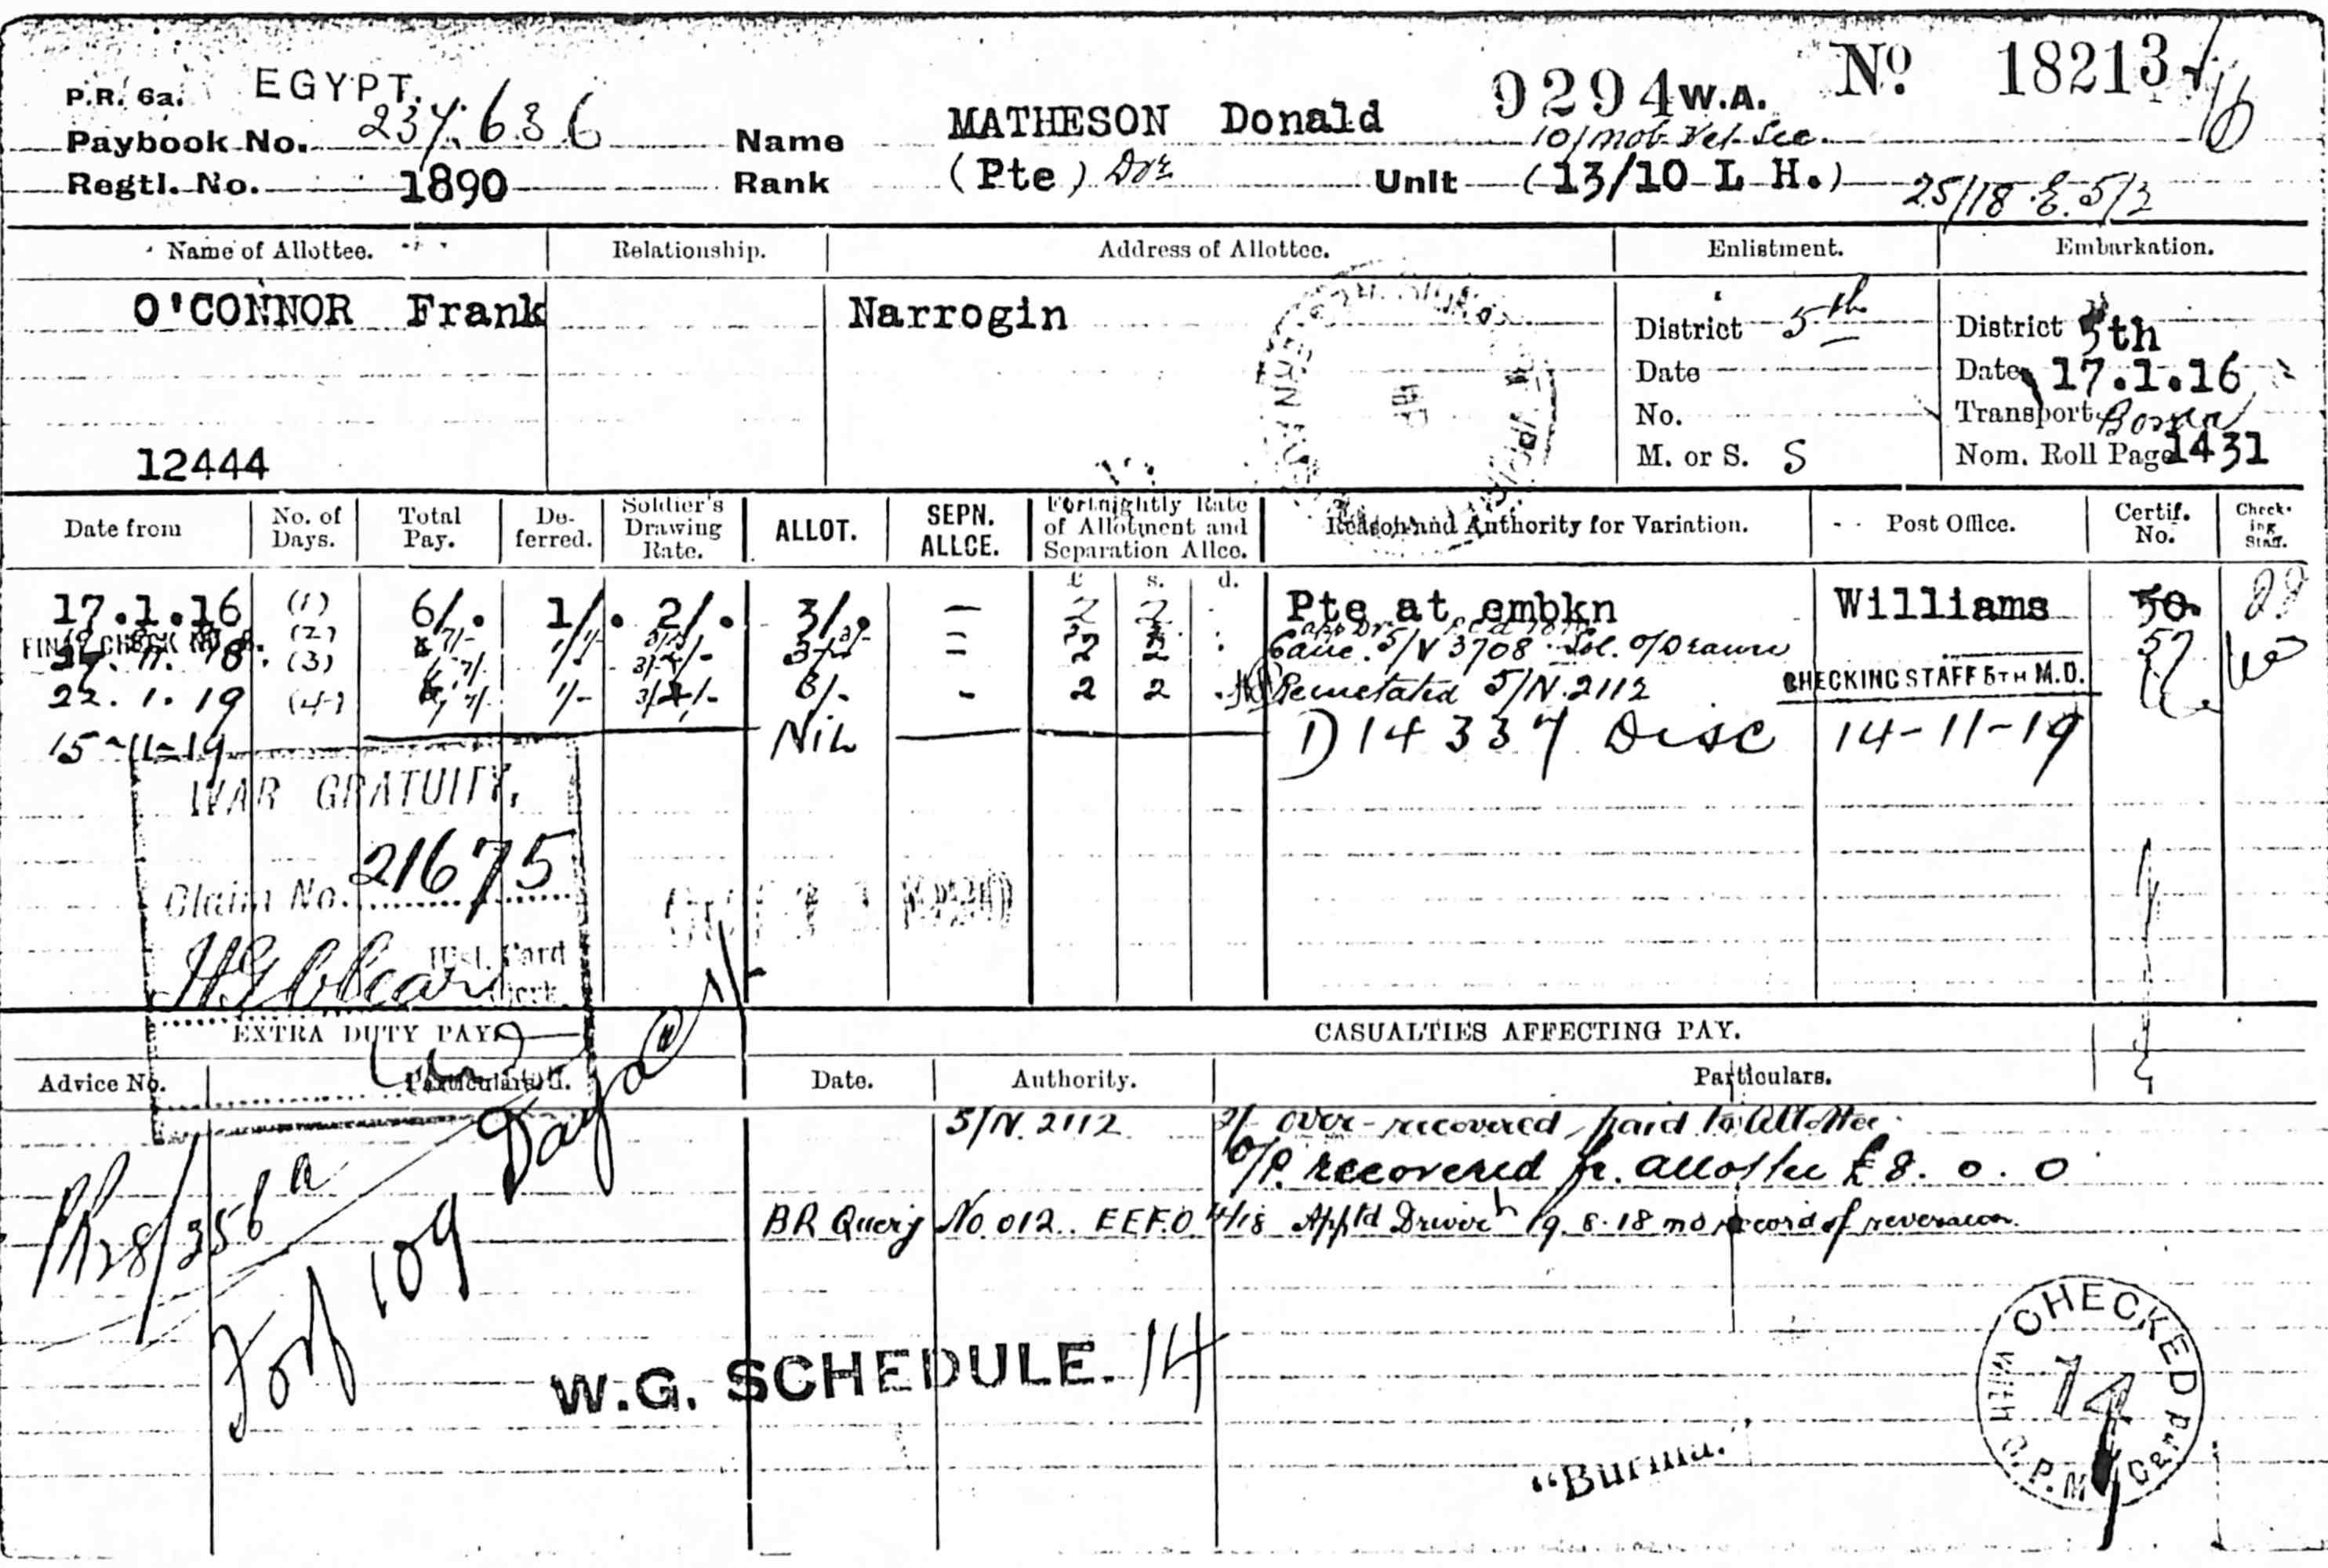 P.R. 6a. EGYPT. 9294 W.A. No 18213
Paybook No. 237636 Name MATHESON Donald 10/Mob Vet Sec.
Regtl. No. 1890 Rank (Pte) Dvr Unit (13/10 L H.) 25/18 E. 5/3
Name of Allottee. Relationship. Address of Allottee. Enlistment. Embarkation.
O'CONNOR Frank Narrogin District 5th District 5th
Date Date 17.1.16
No. Transport
12444 M. or S. S Nom. Roll Page 1431
Date from No. of Days. Total Pay. De-ferred. Soldier's Drawing Rate. ALLOT. SEPN. ALLCE. Fortnightly Rate of Allotment and Separation Allce. Reason and Authority for Variation. Post Office. Certif. No. Check-ing Staff.
£ s. d.
17.1.16 (1) 6/. 1/. 2/. 3/. — 2 2 Pte at embkn Williams 50.
FINAL CHECK (2) 7/- 1/- =
27.11.18. (3) 7/- 1/- 2 2 Canc. 5/N 3708 Sol. o/Drawn 57
22.1.19 (4) 7/- 1/- 3/- - 2 2 Reinstated 5/N. 2112 CHECKING STAFF 5TH M.D.
15-11-19 Nil D14337 Disc 14-11-19
WAR GRATUITY.
Claim No. 21675
Hist. Card
Clerk.
EXTRA DUTY PAY. CASUALTIES AFFECTING PAY.
Advice No. Particulars. Date. Authority. Particulars.
5/N. 2112 over-recovered paid to Allottee
O/P. recovered fr. allottee £8.0.0
BR Query No 012. EEFO App'td Driver 19.8.18 no record of reversion
PR28/356a
For 109 Days @ 1/-
W.G. SCHEDULE. 14
CHECKED WITH C.P.M. Card 14
"Burma."